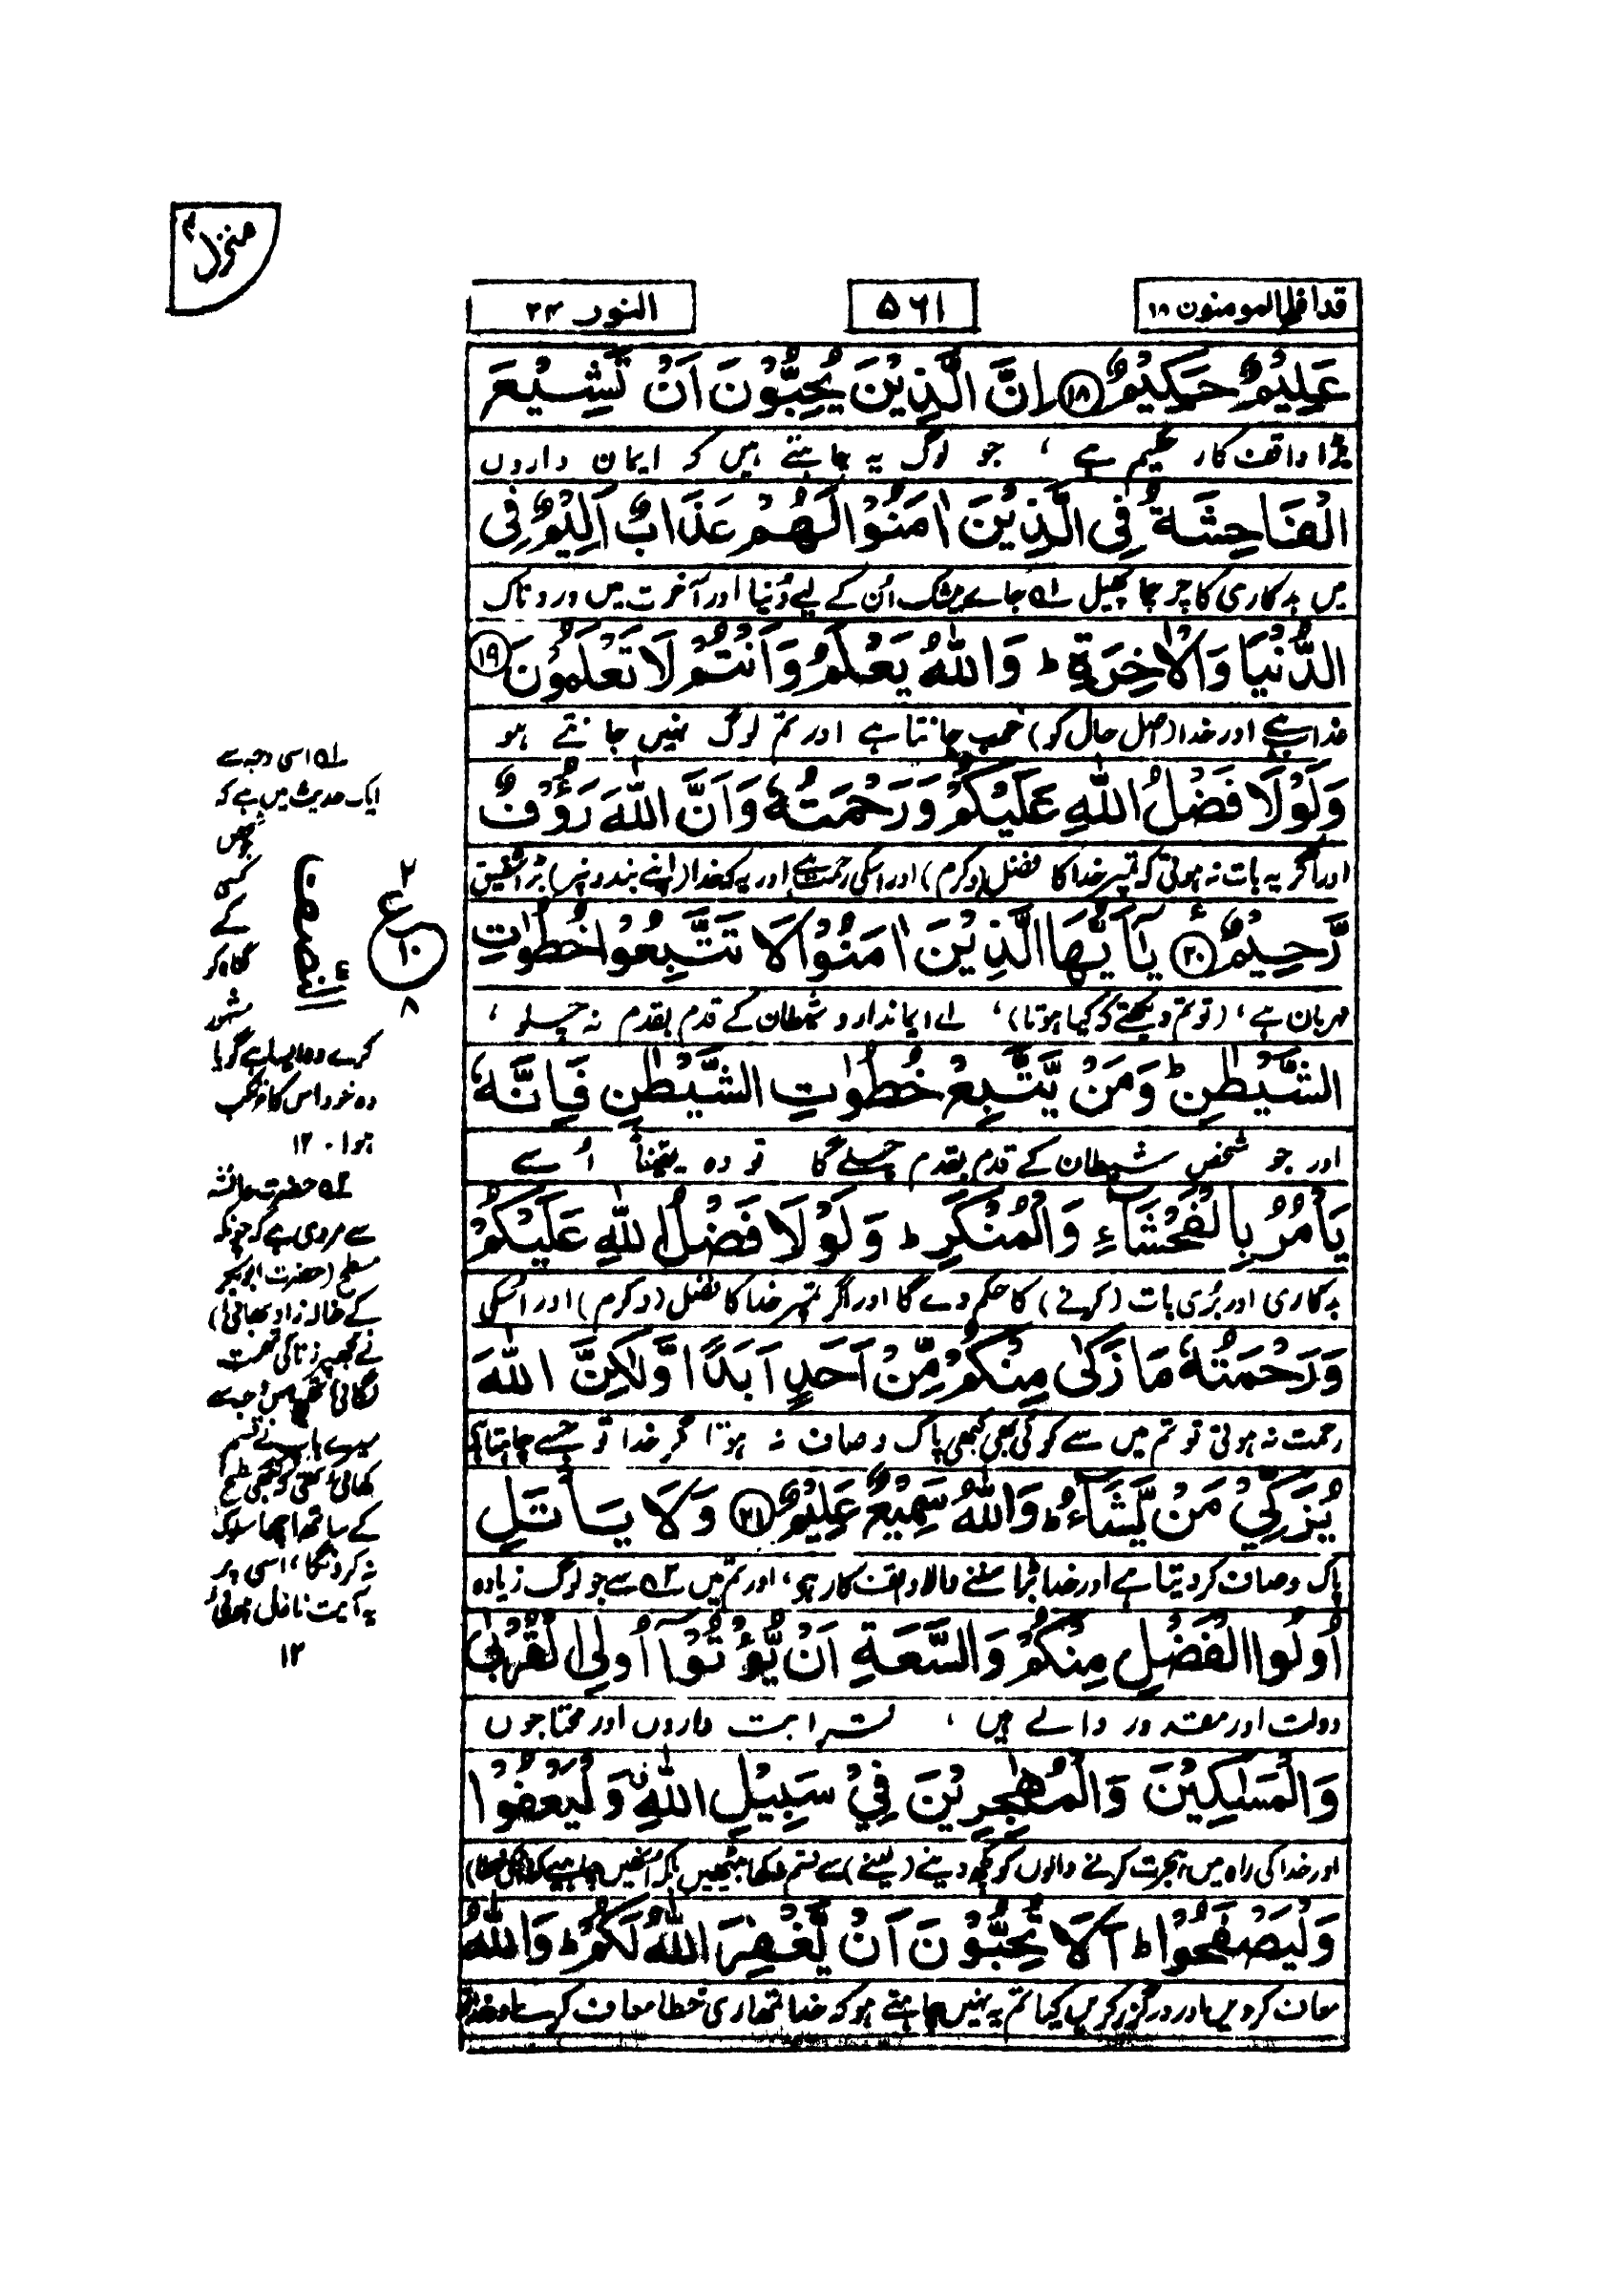 منزل ۴
قد افلح المومنون ۱۸
۵۶۱
النور ۲۴
عَلِيْمٌ حَكِيْمٌ ۱۸ اِنَّ الَّذِيْنَ يُحِبُّوْنَ اَنْ تَشِيْعَ
بڑا واقف کار حکیم ہے ، جو لوگ یہ چاہتے ہیں کہ ایمان داروں
الْفَاحِشَةُ فِى الَّذِيْنَ اٰمَنُوْا لَهُمْ عَذَابٌ اَلِيْمٌ فِى
میں بدکاری کا چرچا پھیل ؎۱ جاے بیشک اُن کے لیے دُنیا اور آخرت میں دردناک
الدُّنْيَا وَالْاٰخِرَةِ ؕ وَاللّٰهُ يَعْلَمُ وَاَنْتُمْ لَا تَعْلَمُوْنَ ۱۹
عذاب ہے اور خدا (اصل حال کو) خوب جانتا ہے اور تم لوگ نہیں جانتے ہو
وَلَوْلَا فَضْلُ اللّٰهِ عَلَيْكُمْ وَرَحْمَتُهٗ وَاَنَّ اللّٰهَ رَءُوْفٌ
اور اگر یہ بات نہ ہوتی کہ تم پر خدا کا فضل (و کرم) اور اسکی رحمت ہے اور یہ کہ خدا (اپنے بندوں پر) بڑا شفیق
رَّحِيْمٌ ۲۰ يٰۤاَيُّهَا الَّذِيْنَ اٰمَنُوْا لَا تَتَّبِعُوْا خُطُوٰتِ
مہربان ہے ، (تو تم دیکھتے کہ کیا ہوتا) ، اے ایماندارو شیطان کے قدم بقدم نہ چلو ،
الشَّيْطٰنِ ؕ وَمَنْ يَّتَّبِعْ خُطُوٰتِ الشَّيْطٰنِ فَاِنَّهٗ
اور جو شخص شیطان کے قدم بقدم چلے گا تو وہ یقیناً اُسے
يَاْمُرُ بِالْفَحْشَآءِ وَالْمُنْكَرِ ؕ وَلَوْلَا فَضْلُ اللّٰهِ عَلَيْكُمْ
بدکاری اور بُری بات (کرنے) کا حکم دے گا اور اگر تم پر خدا کا فضل (و کرم) اور اسکی
وَرَحْمَتُهٗ مَا زَكٰى مِنْكُمْ مِّنْ اَحَدٍ اَبَدًا وَّلٰكِنَّ اللّٰهَ
رحمت نہ ہوتی تو تم میں سے کوئی بھی کبھی پاک و صاف نہ ہوتا مگر خدا تو جسے چاہتا ہے
يُزَكِّيْ مَنْ يَّشَآءُ ؕ وَاللّٰهُ سَمِيْعٌ عَلِيْمٌ ۲۱ وَلَا يَاْتَلِ
پاک و صاف کر دیتا ہے اور خدا بڑا سننے والا واقف کار ہے ، اور تم میں ؎۲ سے جو لوگ زیادہ
اُولُوا الْفَضْلِ مِنْكُمْ وَالسَّعَةِ اَنْ يُّؤْتُوْۤا اُولِى الْقُرْبٰى
دولت اور مقدور والے ہیں ، قرابت داروں اور محتاجوں
وَالْمَسٰكِيْنَ وَالْمُهٰجِرِيْنَ فِيْ سَبِيْلِ اللّٰهِ وَلْيَعْفُوْا
اور خدا کی راہ میں ہجرت کرنے والوں کو کچھ دینے (لینے) سے قسم نہ کھا بیٹھیں بلکہ انھیں چاہیے کہ
وَلْيَصْفَحُوْا ؕ اَلَا تُحِبُّوْنَ اَنْ يَّغْفِرَ اللّٰهُ لَكُمْ ؕ وَاللّٰهُ
معاف کر دیں اور درگزر کریں کیا تم یہ نہیں چاہتے ہو کہ خدا تمھاری خطا معاف کرے اور خدا
؎۱ اسی وجہ سے
ایک حدیث میں ہے کہ
جو شخص
کسی
کے
گناہ کو
مشہور
کرے وہ ایسا ہے گویا
وہ خود اس کا مرتکب
ہوا ۔ ۱۲
۲
ع
۱۰
۸
؎۲ حضرت عائشہ
سے مروی ہے کہ چونکہ
مسطح (حضرت ابوبکر
کے خالہ زاد بھائی)
نے مجھ پر زنا کی تہمت
لگائی تھی اس وجہ سے
میرے باپ نے قسم
کھائی تھی کہ کبھی مسطح
کے ساتھ اچھا سلوک
نہ کرونگا ، اسی پر
یہ آیت نازل ہوئی
۱۲